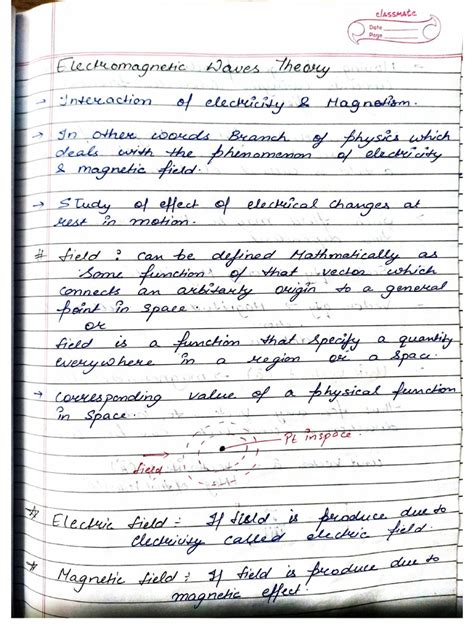 classmate
Date
Page
Electromagnetic Waves Theory
→ Interaction of electricity & Magnetism.
→ In other words Branch of physics which
deals with the phenomenon of electricity
& magnetic field.
→ Study of effect of electrical changes at
rest in motion.
# field : can be defined Mathmatically as
Some function of that vector which
connects an arbitarty origin to a general
point in space
or
field is a function that specify a quantity
everywhere in a region or a Space.
→ Corresponding value of a physical function
in Space.
Pt in space
field
* Electric field : If field is produce due to
electricity called electric field.
* Magnetic field : If field is produce due to
magnetic effect.